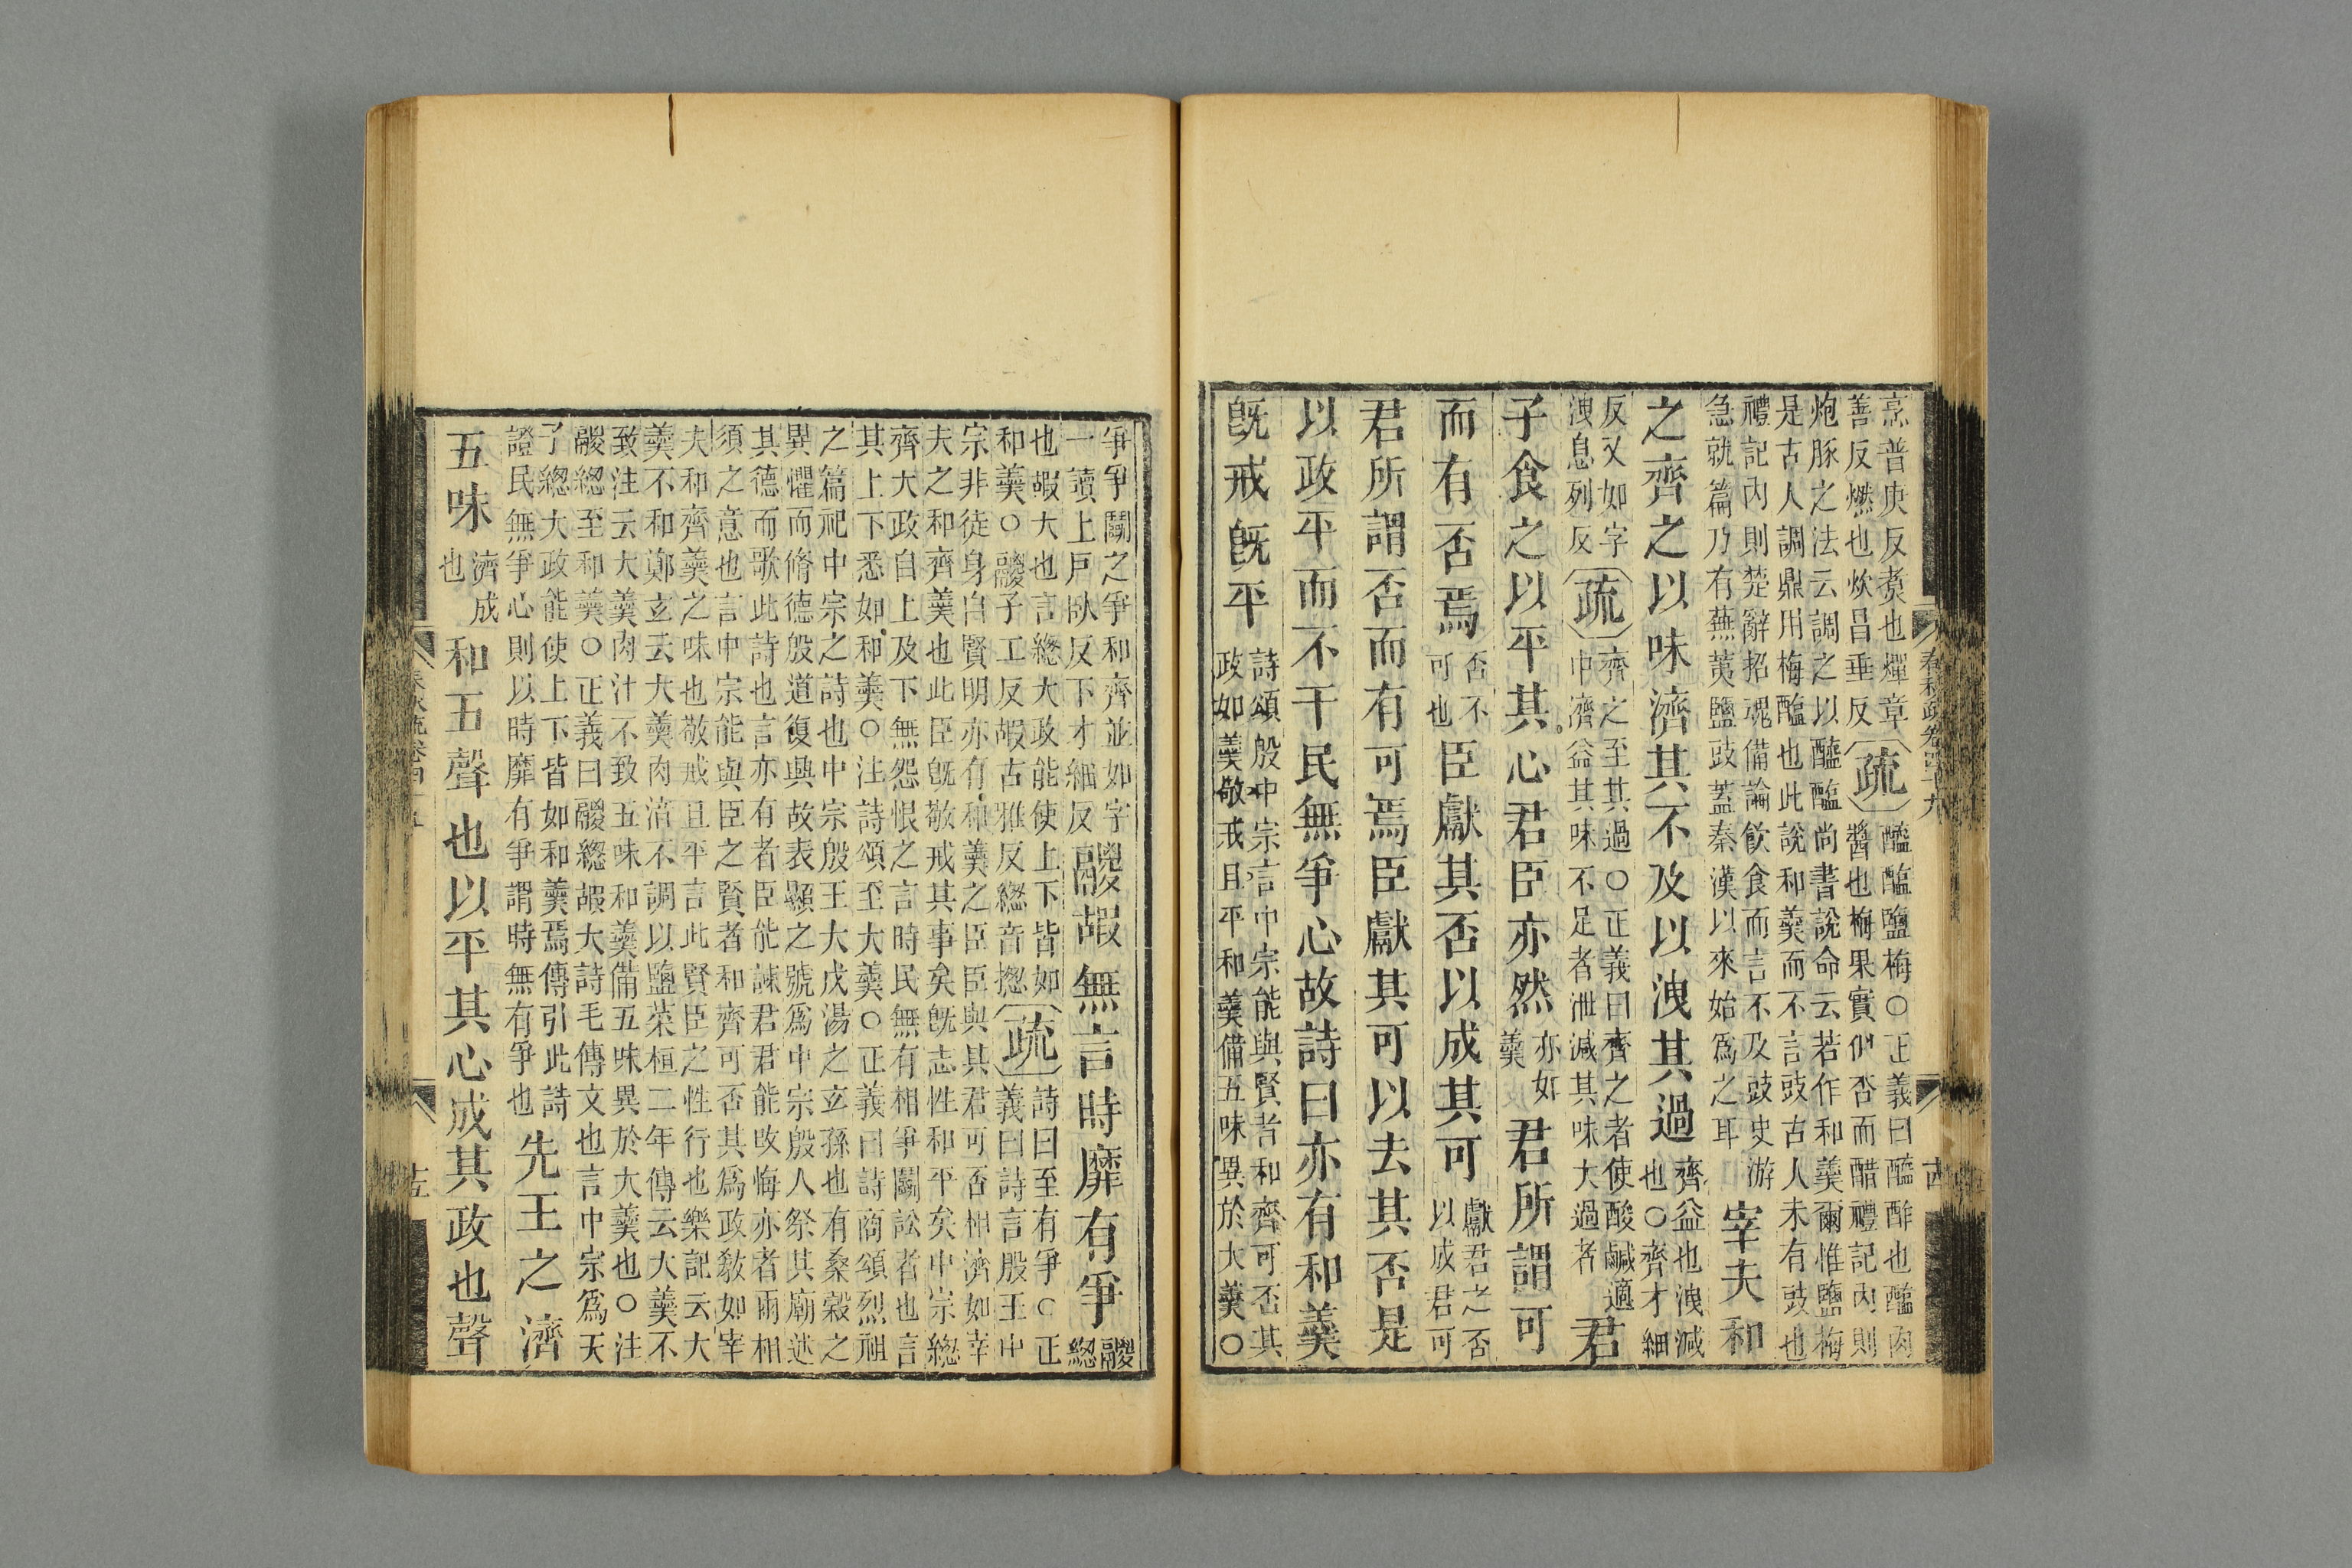 春秋疏卷四十九
烹普庚反煑也燀章善反燃也炊昌垂反疏醯醢鹽梅○正義曰醯酢也醢肉醬也梅果實似杏而醋禮記內則
炮豚之法云調之以醯醢尚書說命云若作和羹爾惟鹽梅
是古人調鼎用梅醢也此說和羹而不言豉古人未有豉也
禮記內則楚辭招魂備論飲食而言不及豉史游急就篇乃有蕪荑鹽豉蓋秦漢以來始爲之耳宰夫和
之齊之以味濟其不及以洩其過齊益也洩減也○齊才細
反又如字洩息列反疏齊之至其過○正義曰齊之者使酸鹹適中濟益其味不足者泄減其味大過者君
子食之以平其心君臣亦然亦如羹君所謂可
而有否焉否不可也臣獻其否以成其可獻君之否以成君可
君所謂否而有可焉臣獻其可以去其否是
以政平而不干民無爭心故詩曰亦有和羹
旣戒旣平詩頌殷中宗言中宗能與賢者和齊可否其政如羹敬戒且平和羹備五味異於大羹○
爭爭鬭之爭和齊並如字一讀上戶臥反下才細反鬷嘏無言時靡有爭鬷總
也嘏大也言總大政能使上下皆如和羹○鬷子工反嘏古雅反總音揔疏詩曰至有爭○正義曰詩言殷王中
宗非徒身自賢明亦有和羹之臣臣與其君可否相濟如宰
夫之和齊羹也此臣旣敬戒其事矣旣志性和平矣中宗總
齊大政自上及下無怨恨之言時民無有相爭鬭訟者也言
其上下悉如和羹○注詩頌至大羹○正義曰詩商頌烈祖
之篇祀中宗之詩也中宗殷王大戊湯之玄孫也有桑榖之
異懼而脩德殷道復興故表顯之號爲中宗殷人祭其廟述
其德而歌此詩也言亦有者臣能諫君君能改悔亦者兩相
須之意也言中宗能與臣之賢者和齊可否其爲政敎如宰
夫和齊羹之味也敬戒且平言此賢臣之性行也樂記云大
羹不和鄭玄云大羹肉湆不調以鹽菜桓二年傳云大羹不
致注云大羹肉汁不致五味和羹備五味異於大羹也○注
鬷總至和羹○正義曰鬷總嘏大詩毛傳文也言中宗爲天
子總大政能使上下皆如和羹焉傳引此詩證民無爭心則以時靡有爭謂時無有爭也先王之濟
五味濟成也和五聲也以平其心成其政也聲